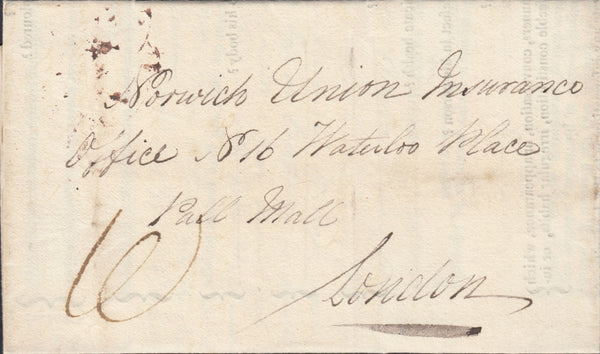 Norwich Union Insurance
Office N 16 Waterloo Place
Pall Mall
London